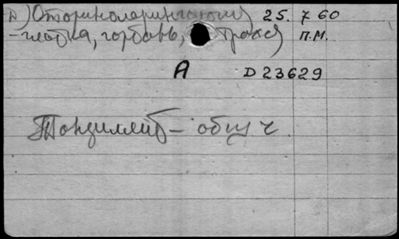 Д) Оториноларингология 25. 7 60
-глотка, гортань, трахея П.М.
А D 23629
Тонзиллит - общ ч